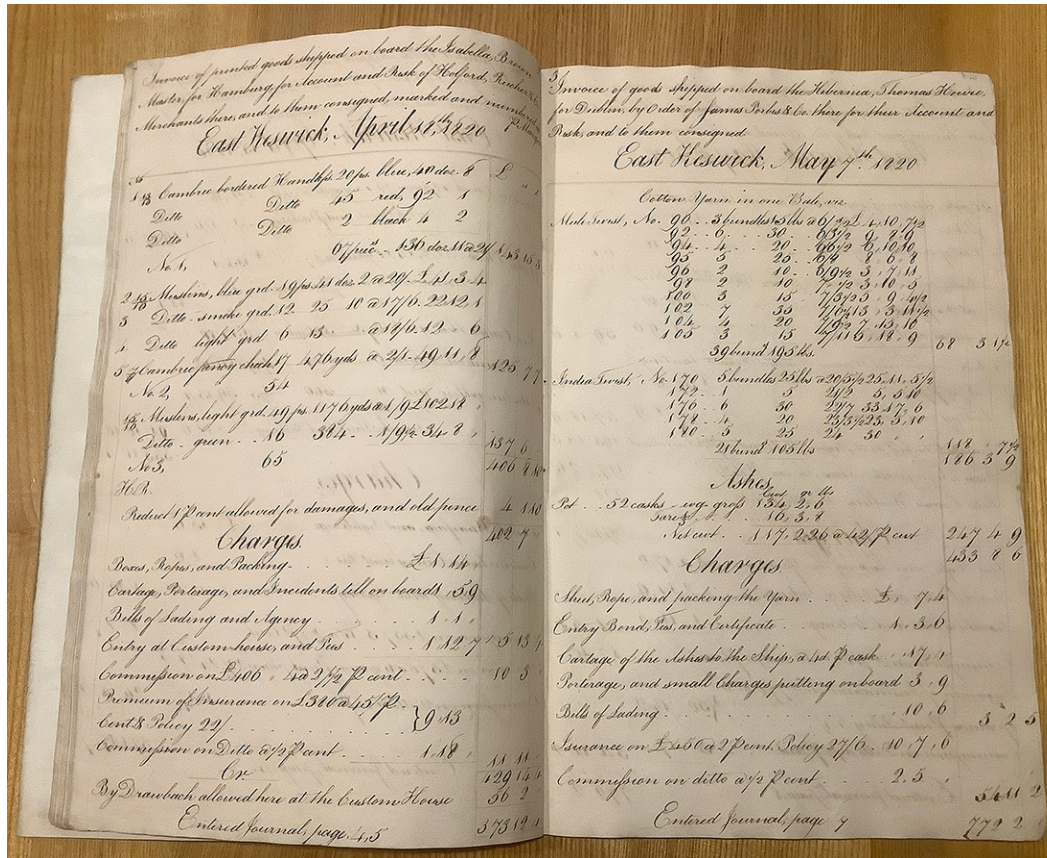 Invoice of printed goods shipped on board the Isabella, Brown
Master, for Hamburg, for Account and Risk of Holford,
Merchants there, and to them consigned, marked and
East Keswick, April 18th 1820
Cambric bordered Handkfs 20 ps. blue, 40 doz. 8
Ditto Ditto 45 red, 92 1
Ditto Ditto 2 black 4 2
No. 1,
2 Muslins, blue grd. 19 ps 41 doz. 2 a 20/. £ 41, 3, 4
3 Ditto. smoke grd. 12. 25 10 a 17/6. 22.12, 1
4 Ditto light grd 6 13 a 18/6. 12 . 6
5 Cambric fancy check 17 476 yds a 2/1 - 49 11, 8 125 7 7
No. 2, 54
Muslins, light grd. 49 ps. 1176 yds a 1/9 £ 102 18
Ditto - green - 16 384 - 1/9½ 34 8 137 6
No. 3, 65 406 8 10
H.R.
Deduct 1 P cent allowed for damages, and old pence 4 1 10
402 7
Charges.
Boxes, Ropes, and Packing . . £ 1 14
Cartage, Porterage, and Incidents till on board 1, 5 9
Bills of Lading and Agency . . . 1 1
Entry at Custom-house, and Fees . . 1 12 7 5 13 4
Commission on £406 . 4 a 2½ P cent . . . . 10 3
Premium of Insurance on £380 a 45/ P
Cent & Policy 22/. . . . . } 9 13
Commission on Ditto a ½ P cent . . 1 18 11 11
Cr. 429 14 4
By Drawback allowed here at the Custom House 56 2
Entered Journal, page. 4, 5 373 12 4
3
Invoice of goods shipped on board the Hibernia, Thomas Howie,
for Dublin, by Order of James Forbes & Co. there for their Account and
Risk, and to them consigned
East Keswick, May 7th 1820
Cotton Yarn in one Bale, viz
Mule Twist, No. 90 . . 3 bundles 15 lbs a 6/ £ 4, 10, 7½
92 . . 6 . . 30 . . 6/3½ 9 8 9
94 . . 4 . . 20 6/6½ 6 10 10
95 5 25 . . 6/8 8 6 8
96 2 10 . . 6/9½ 3 , 7, 11
98 2 10 7/ ½ 3 , 10 , 5
100 3 15 7/3½ 5 , 9 , 4½
102 7 35 7/6½ 13 , 3 , 11½
104 . 4 20 7/9½ 7 , 15 , 10
105 3 15 7/11 5 , 18 , 9 68 3 1½
39 bundls 195 lbs.
India Twist, No. 170 5 bundles 25 lbs a 20/5½ 25, 11, 5½
172 . 1 5 21/2 5, 5 10
176 . 6 30 22/7 33 17, 6
178 . 4 20 23/3½ 23, 5, 10
180 . 5 25 24 30 118 . 7½
21 bundls 105 lbs 186 3 9
Ashes,
Cwt qr lbs
Pot . . 52 casks wg. gross 134, 2, 6
Tare 16, 3, 8
Net cwt . . 117, 2, 26 a 42/ P cwt 247 4 9
433 8 6
Charges
Sheet, Rope, and packing the Yarn . . . . £ , 7, 4
Entry Bond, Fees, and Certificate . . . . 1 , 3 , 6
Cartage of the Ashes to the Ship, a 4d. P cask . . 17, 4
Porterage, and small Charges putting on board 3 , 9
Bills of Lading . . . . 10 , 6 3 2 5
Insurance on £ 450 a 2 P cent. Policy 27/6 . . 10 , 7 , 6
Commission on ditto a ½ P cent . . . . 2 . 5
Entered Journal, page 7